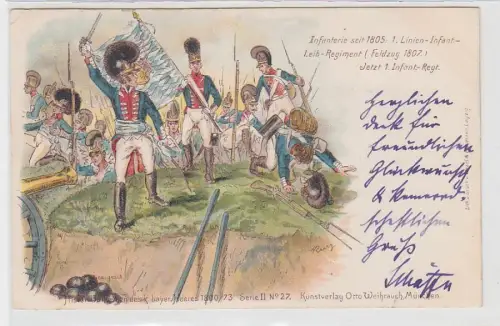 Infanterie seit 1805. 1. Linien-Infant-
Leib-Regiment (Feldzug 1807.)
Jetzt 1. Infant-Regt.
Herzlichen
Dank für
freundlichen
Glückwunsch
& kamerad
schaftlichen
Gruß
Bayer. Heeres 1800/73. Serie II No 27. Kunstverlag Otto Weihrauch, München.